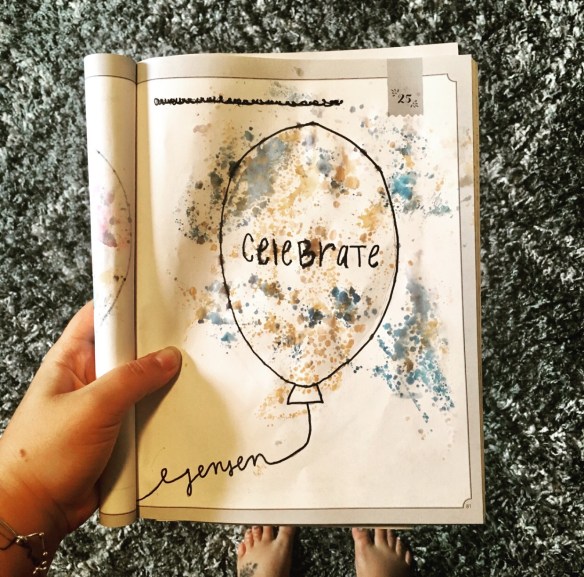 25
CeleBraTe
ejensen